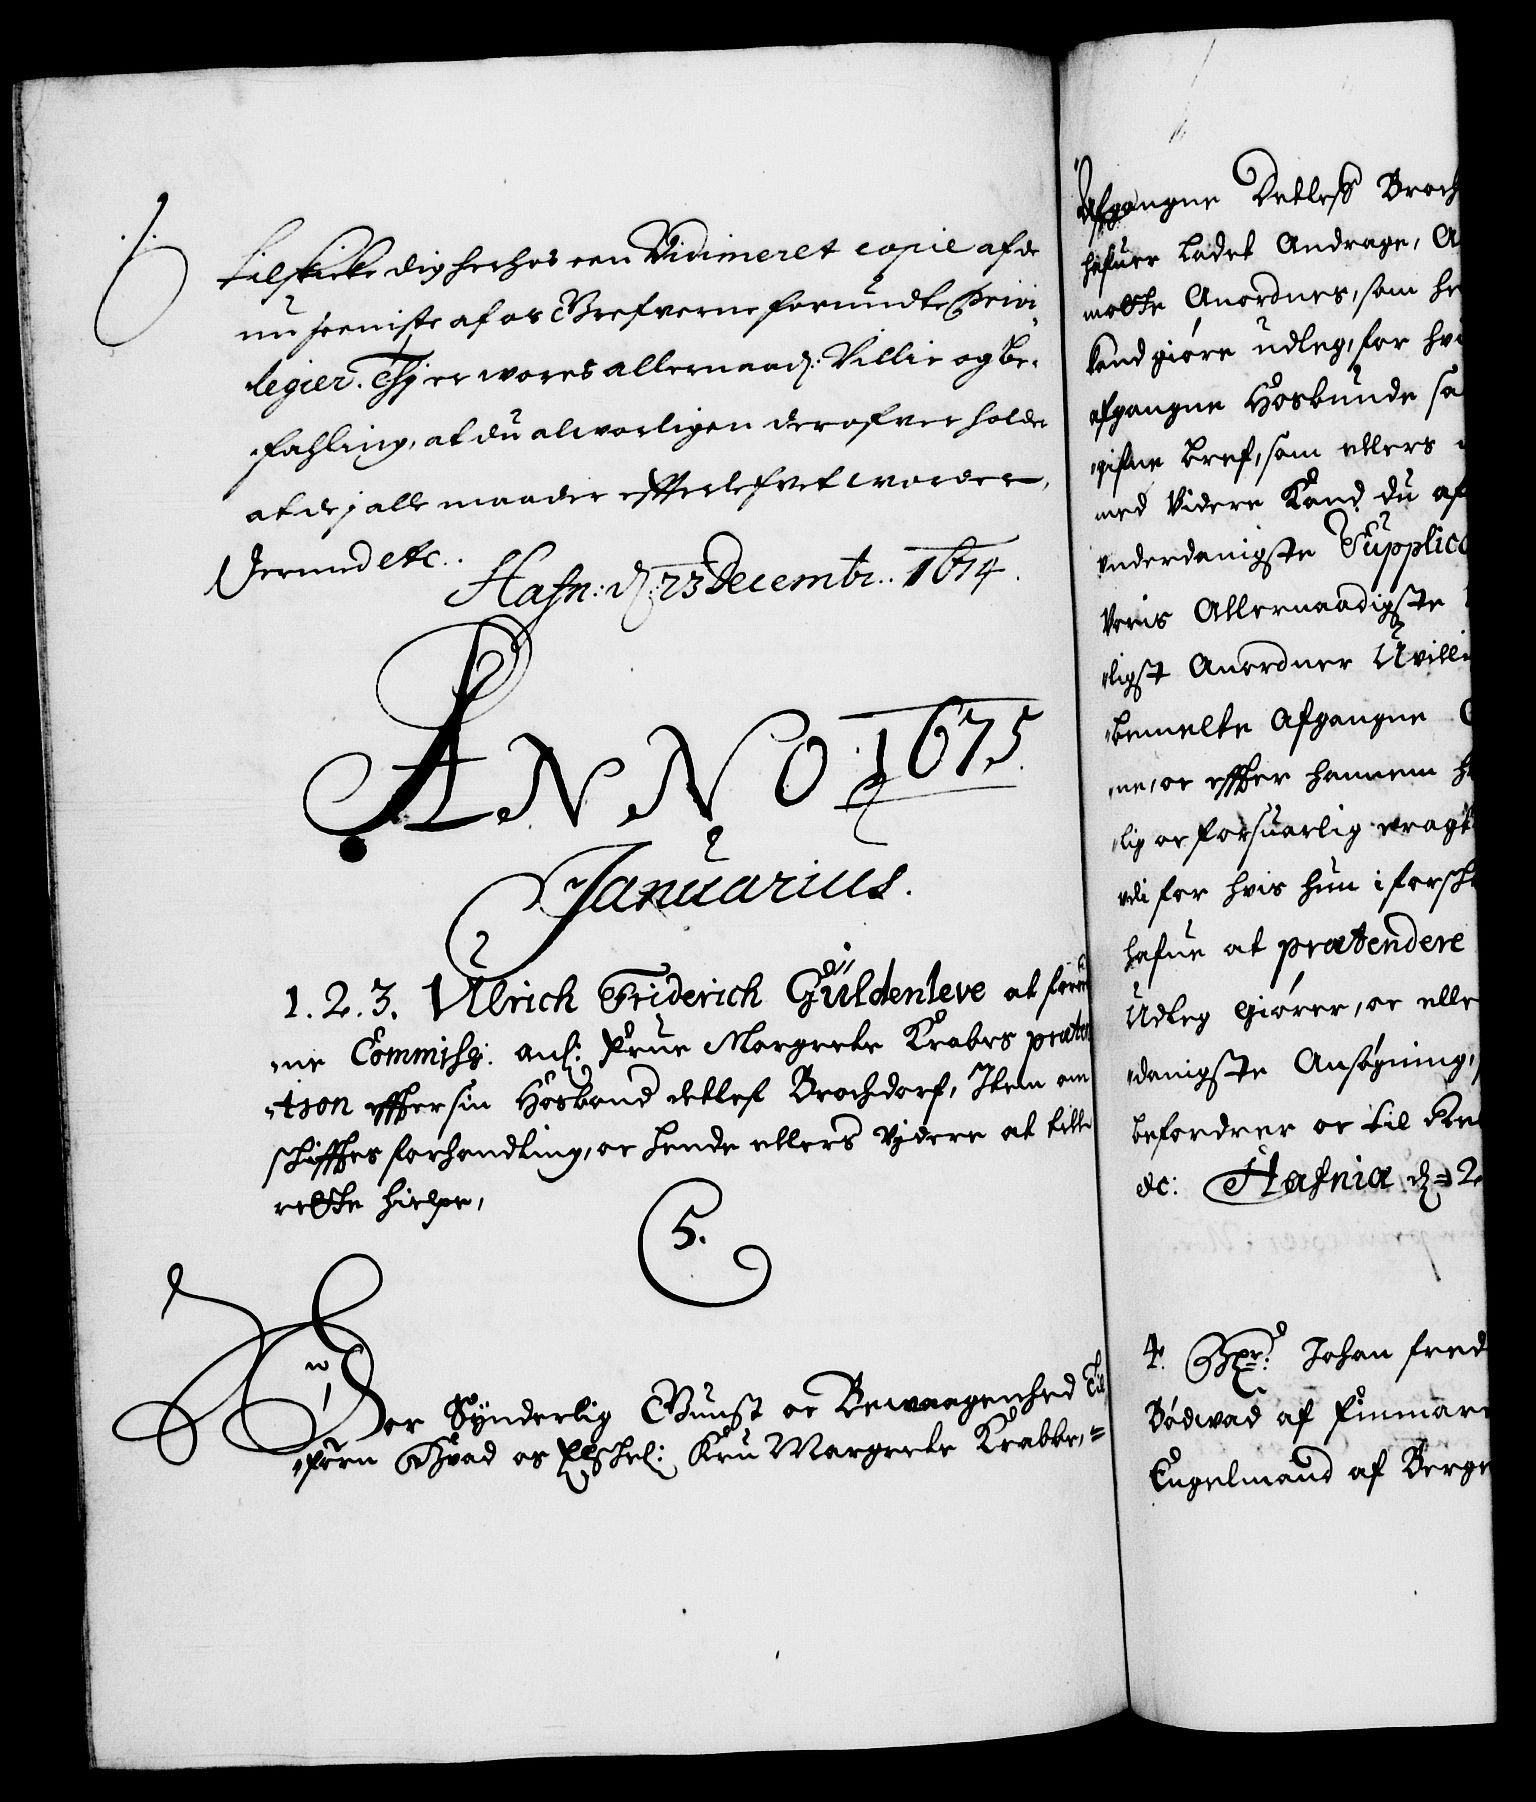 tilskicke dig herhos een Vidimeret copie af de
nu seeniste af os Grefverne forundte Privi
legier. Thj er wores allernaad: Villie og be-
fahling, at du alvorligen derofver holder
at de j alle maader effterlefvet worder,
Dermed etc.
Hafn: d: 23 Decembr. 1674.
ANNO 1675.
Januarius.
1. 2. 3. Ulrich Friderich Güldenleve at forord
ne Commiss: anl: Frue Margrete Krabes præten
tion effter sin Hosbond Detlef Brochdorf, Item om
skifftes forhandling, oc hende ellers Vjdere at til
rette hielpe,
5.
Wor Synderlig Gunst oc Bewaagenhed Til
forn Hvad os Elschel: Fru Margrete Krabbe,
Afgangne Detlefs Broch
hafuer ladet Andrage, A
motte Anordnes, som he
kand giøre udleg, for hvi
afgangne Hosbunde sa
gifne bref, som ellers
med Videre Kand du af
underdanigste Supplica
Voris Allernaadigste
ligst Anordner Uvilli
bemelte Afgangne
ne, oc effter hannem h
lig oc forsuarlig eragt
di for hvis hun i forsch
hafue at prætendere
Udleg giører, oc elle
danigste Ansøgning,
befordrer oc til Ret
&c: Hafniæ d: 2
4. Johan fred
Bødwad af Finmar
Engelmand af Berge